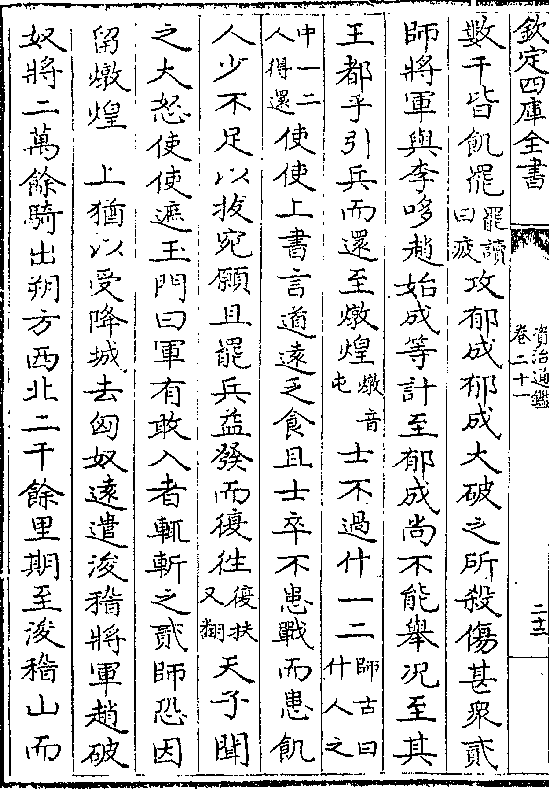 欽定四庫全書
資治通鑑
卷二十一
二十二
數千皆飢罷罷讀曰疲攻郁成郁成大破之所殺傷甚衆貳
師將軍與李哆趙始成等計至郁成尚不能舉况至其
王都乎引兵而還至燉煌燉音屯士不過什一二師古曰什人之
中一二人得還使使上書言道遠乏食且士卒不患戰而患飢
人少不足以拔宛願且罷兵益發而復往復扶又翻天子聞
之大怒使使遮玉門曰軍有敢入者輒斬之貳師恐因
留燉煌 上猶以受降城去匈奴遠遣浚稽將軍趙破
奴將二萬餘騎出朔方西北二千餘里期至浚稽山而